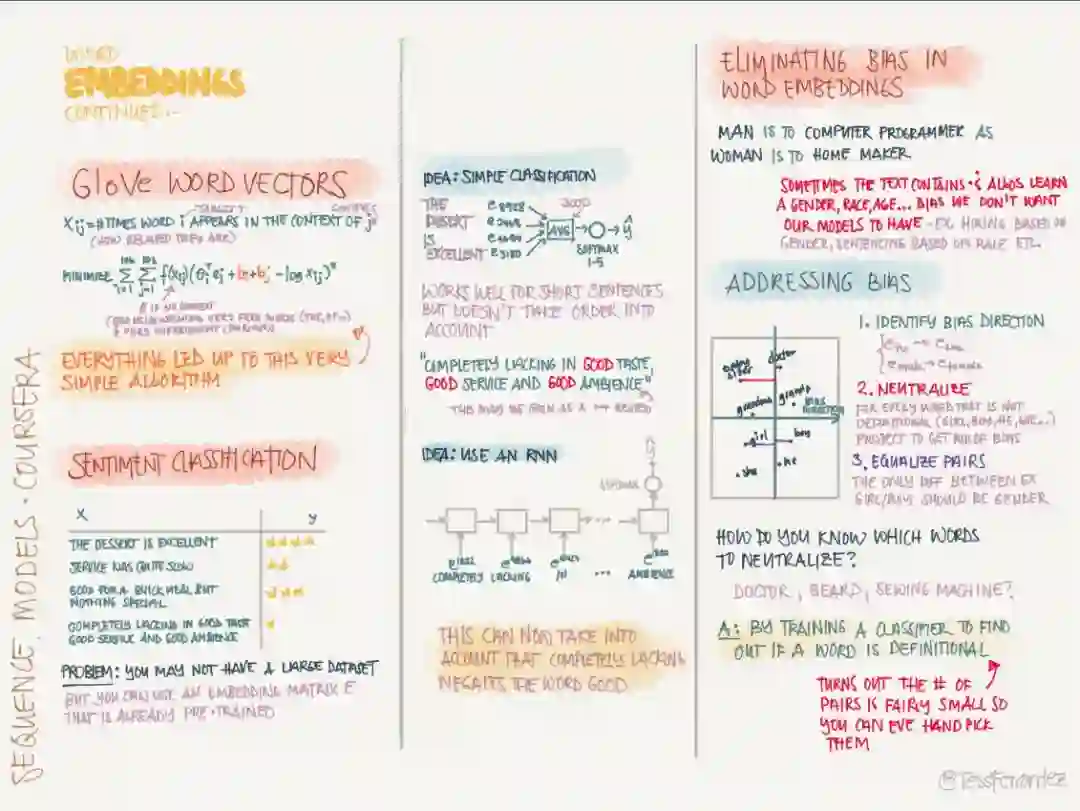 WORD
EMBEDDINGS
CONTINUED...
GloVe WORD VECTORS
TARGET
CONTEXT
Xij = # TIMES WORD i APPEARS IN THE CONTEXT OF j
(HOW RELATED THEY ARE)
MINIMIZE Σ Σ f(Xij)(θiᵀej + bi + bj - log Xij)²
i=1 j=1
EVERYTHING LED UP TO THIS VERY
SIMPLE ALGORITHM
SENTIMENT CLASSIFICATION
X y
THE DESSERT IS EXCELLENT ★★★★
SERVICE WAS QUITE SLOW ★★
GOOD FOR A QUICK MEAL BUT ★★★
NOTHING SPECIAL
COMPLETELY LACKING IN GOOD TASTE ★
GOOD SERVICE AND GOOD AMBIENCE
PROBLEM: YOU MAY NOT HAVE A LARGE DATASET
BUT YOU CAN USE AN EMBEDDING MATRIX E
THAT IS ALREADY PRE-TRAINED
SEQUENCE MODELS · COURSERA
IDEA: SIMPLE CLASSIFICATION
THE
DESERT
IS
EXCELLENT
e8928
AVG
ŷ
SOFTMAX
1-5
WORKS WELL FOR SHORT SENTENCES
BUT DOESN'T TAKE ORDER INTO
ACCOUNT
"COMPLETELY LACKING IN GOOD TASTE,
GOOD SERVICE AND GOOD AMBIENCE"
THIS MAY BE SEEN AS A
IDEA: USE AN RNN
ŷ
SOFTMAX
COMPLETELY LACKING IN ... AMBIENCE
THIS CAN NOW TAKE INTO
ACCOUNT THAT COMPLETELY LACKING
NEGATES THE WORD GOOD
ELIMINATING BIAS IN
WORD EMBEDDINGS
MAN IS TO COMPUTER PROGRAMMER AS
WOMAN IS TO HOME MAKER
SOMETIMES THE TEXT CONTAINS & ALGOS LEARN
A GENDER, RACE, AGE... BIAS WE DON'T WANT
OUR MODELS TO HAVE - EX. HIRING BASED ON
GENDER, SENTENCING BASED ON RACE ETC.
ADDRESSING BIAS
doctor
grandma
grandpa
BIAS
DIRECTION
girl
boy
she
he
1. IDENTIFY BIAS DIRECTION
ehe → eshe
emale → efemale
2. NEUTRALIZE
FOR EVERY WORD THAT IS NOT
DEFINITIONAL (GIRL, BOY, HE, SHE...)
PROJECT TO GET RID OF BIAS
3. EQUALIZE PAIRS
THE ONLY DIFF BETWEEN EX
GIRL/BOY SHOULD BE GENDER
HOW DO YOU KNOW WHICH WORDS
TO NEUTRALIZE?
DOCTOR, BEARD, SEWING MACHINE?
A: BY TRAINING A CLASSIFIER TO FIND
OUT IF A WORD IS DEFINITIONAL
TURNS OUT THE # OF
PAIRS IS FAIRLY SMALL SO
YOU CAN EVE HAND PICK
THEM
@TessFerrandez